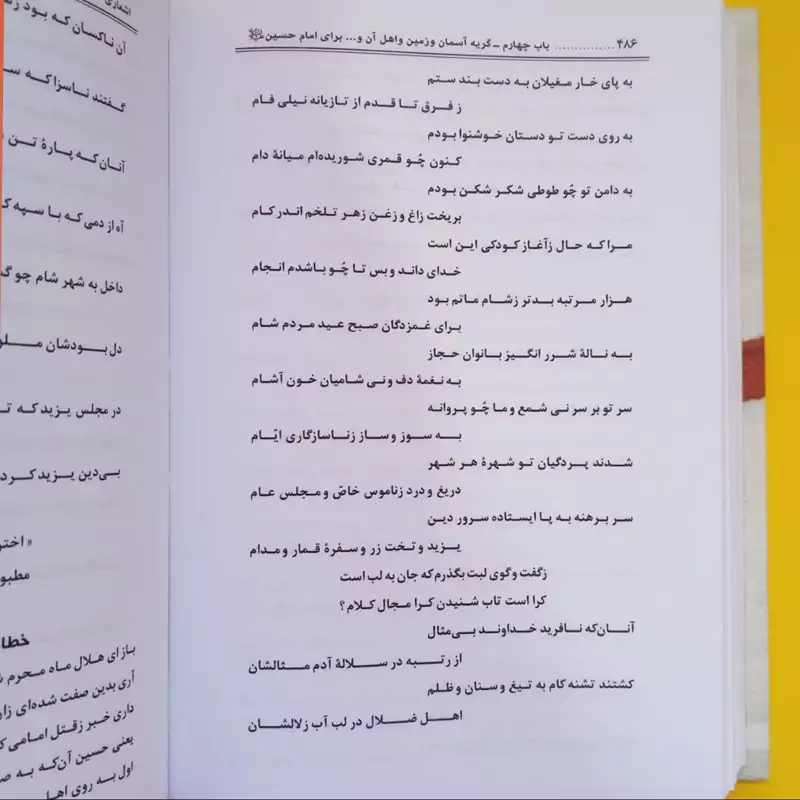 ۴۸۶ ............... باب چهارم ـ گریه آسمان وزمین واهل آن و... برای امام حسین
به پای خار مغیلان به دست بند ستم
ز فرق تا قدم از تازیانه نیلی فام
به روی دست تو دستان خوشنوا بودم
کنون چُو قمری شوریده‌ام میانهٔ دام
به دامن تو چُو طوطی شکر شکن بودم
بریخت زاغ و زغن زهر تلخم اندر کام
مرا که حال زآغاز کودکی این است
خدای داند و بس تا چُو باشدم انجام
هزار مرتبه بدتر زشام ماتم بود
برای غمزدگان صبح عید مردم شام
به نالهٔ شرر انگیز بانوان حجاز
به نغمهٔ دف و نی شامیان خون آشام
سر تو بر سر نی شمع و ما چُو پروانه
به سوز و ساز زناسازگاری ایّام
شدند پردگیان تو شهرهٔ هر شهر
دریغ و درد زناموس خاصّ و مجلس عام
سر برهنه به پا ایستاده سرور دین
یزید و تخت زر و سفرهٔ قمار و مدام
زگفت وگوی لبت بگذرم که جان به لب است
کرا است تاب شنیدن کرا مجال کلام؟
آنان‌که نافرید خداوند بی‌مثال
از رتبه در سلالهٔ آدم مثالشان
کشتند تشنه کام به تیغ و سنان و ظلم
اهل ضلال در لب آب زلالشان
اشعاری
آن ناکسان که بود
گفتند ناسزا که
آنان‌که پارهٔ تن
آه از دمی که با سپه
داخل به شهر شام چو
دل بودشان
در مجلس یزید که
بی‌دین یزید کرد
«اختر
خطا
باز ای هلال ماه محرم
آری بدین صفت شده‌ای
داری خبر زقتل امامی
یعنی حسین آن‌که به
اول به روی